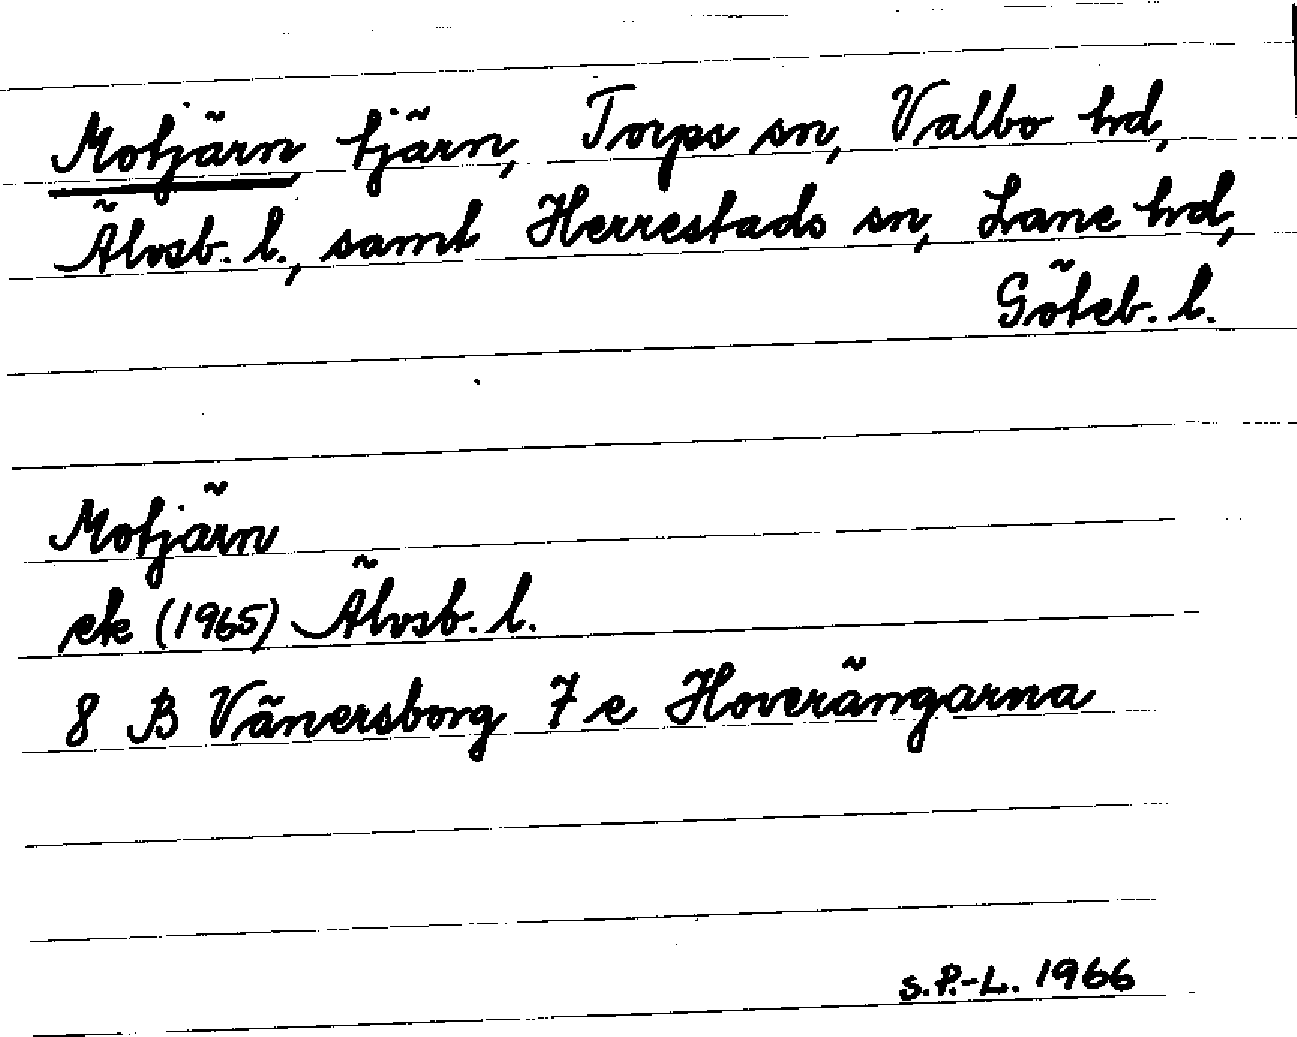 Motjärn tjärn, Torps sn, Valbo hd,
Älvsb. l., samt Herrestads sn, Lane hd,
Göteb. l.
Motjärn
ek (1965) Älvsb. l.
8 B Vänersborg 7 e Hoverängarna
S.P.-L. 1966